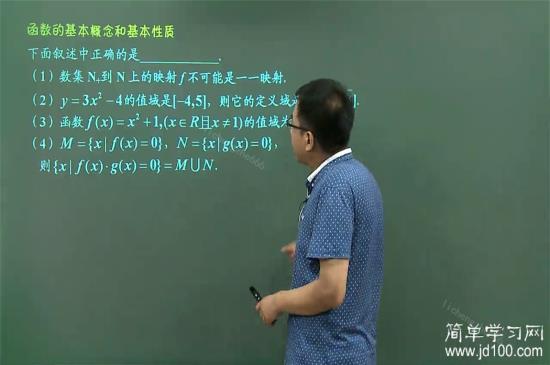 函数的基本概念和基本性质
下面叙述中正确的是____________.
(1) 数集N₊到N上的映射f不可能是一一映射.
(2) y=3x²-4的值域是[-4,5], 则它的定义域
(3) 函数f(x)=x²+1,(x∈R且x≠1)的值域为
(4) M={x|f(x)=0}, N={x|g(x)=0},
则{x|f(x)·g(x)=0}=M∪N.
简单学习网
www.jd100.com